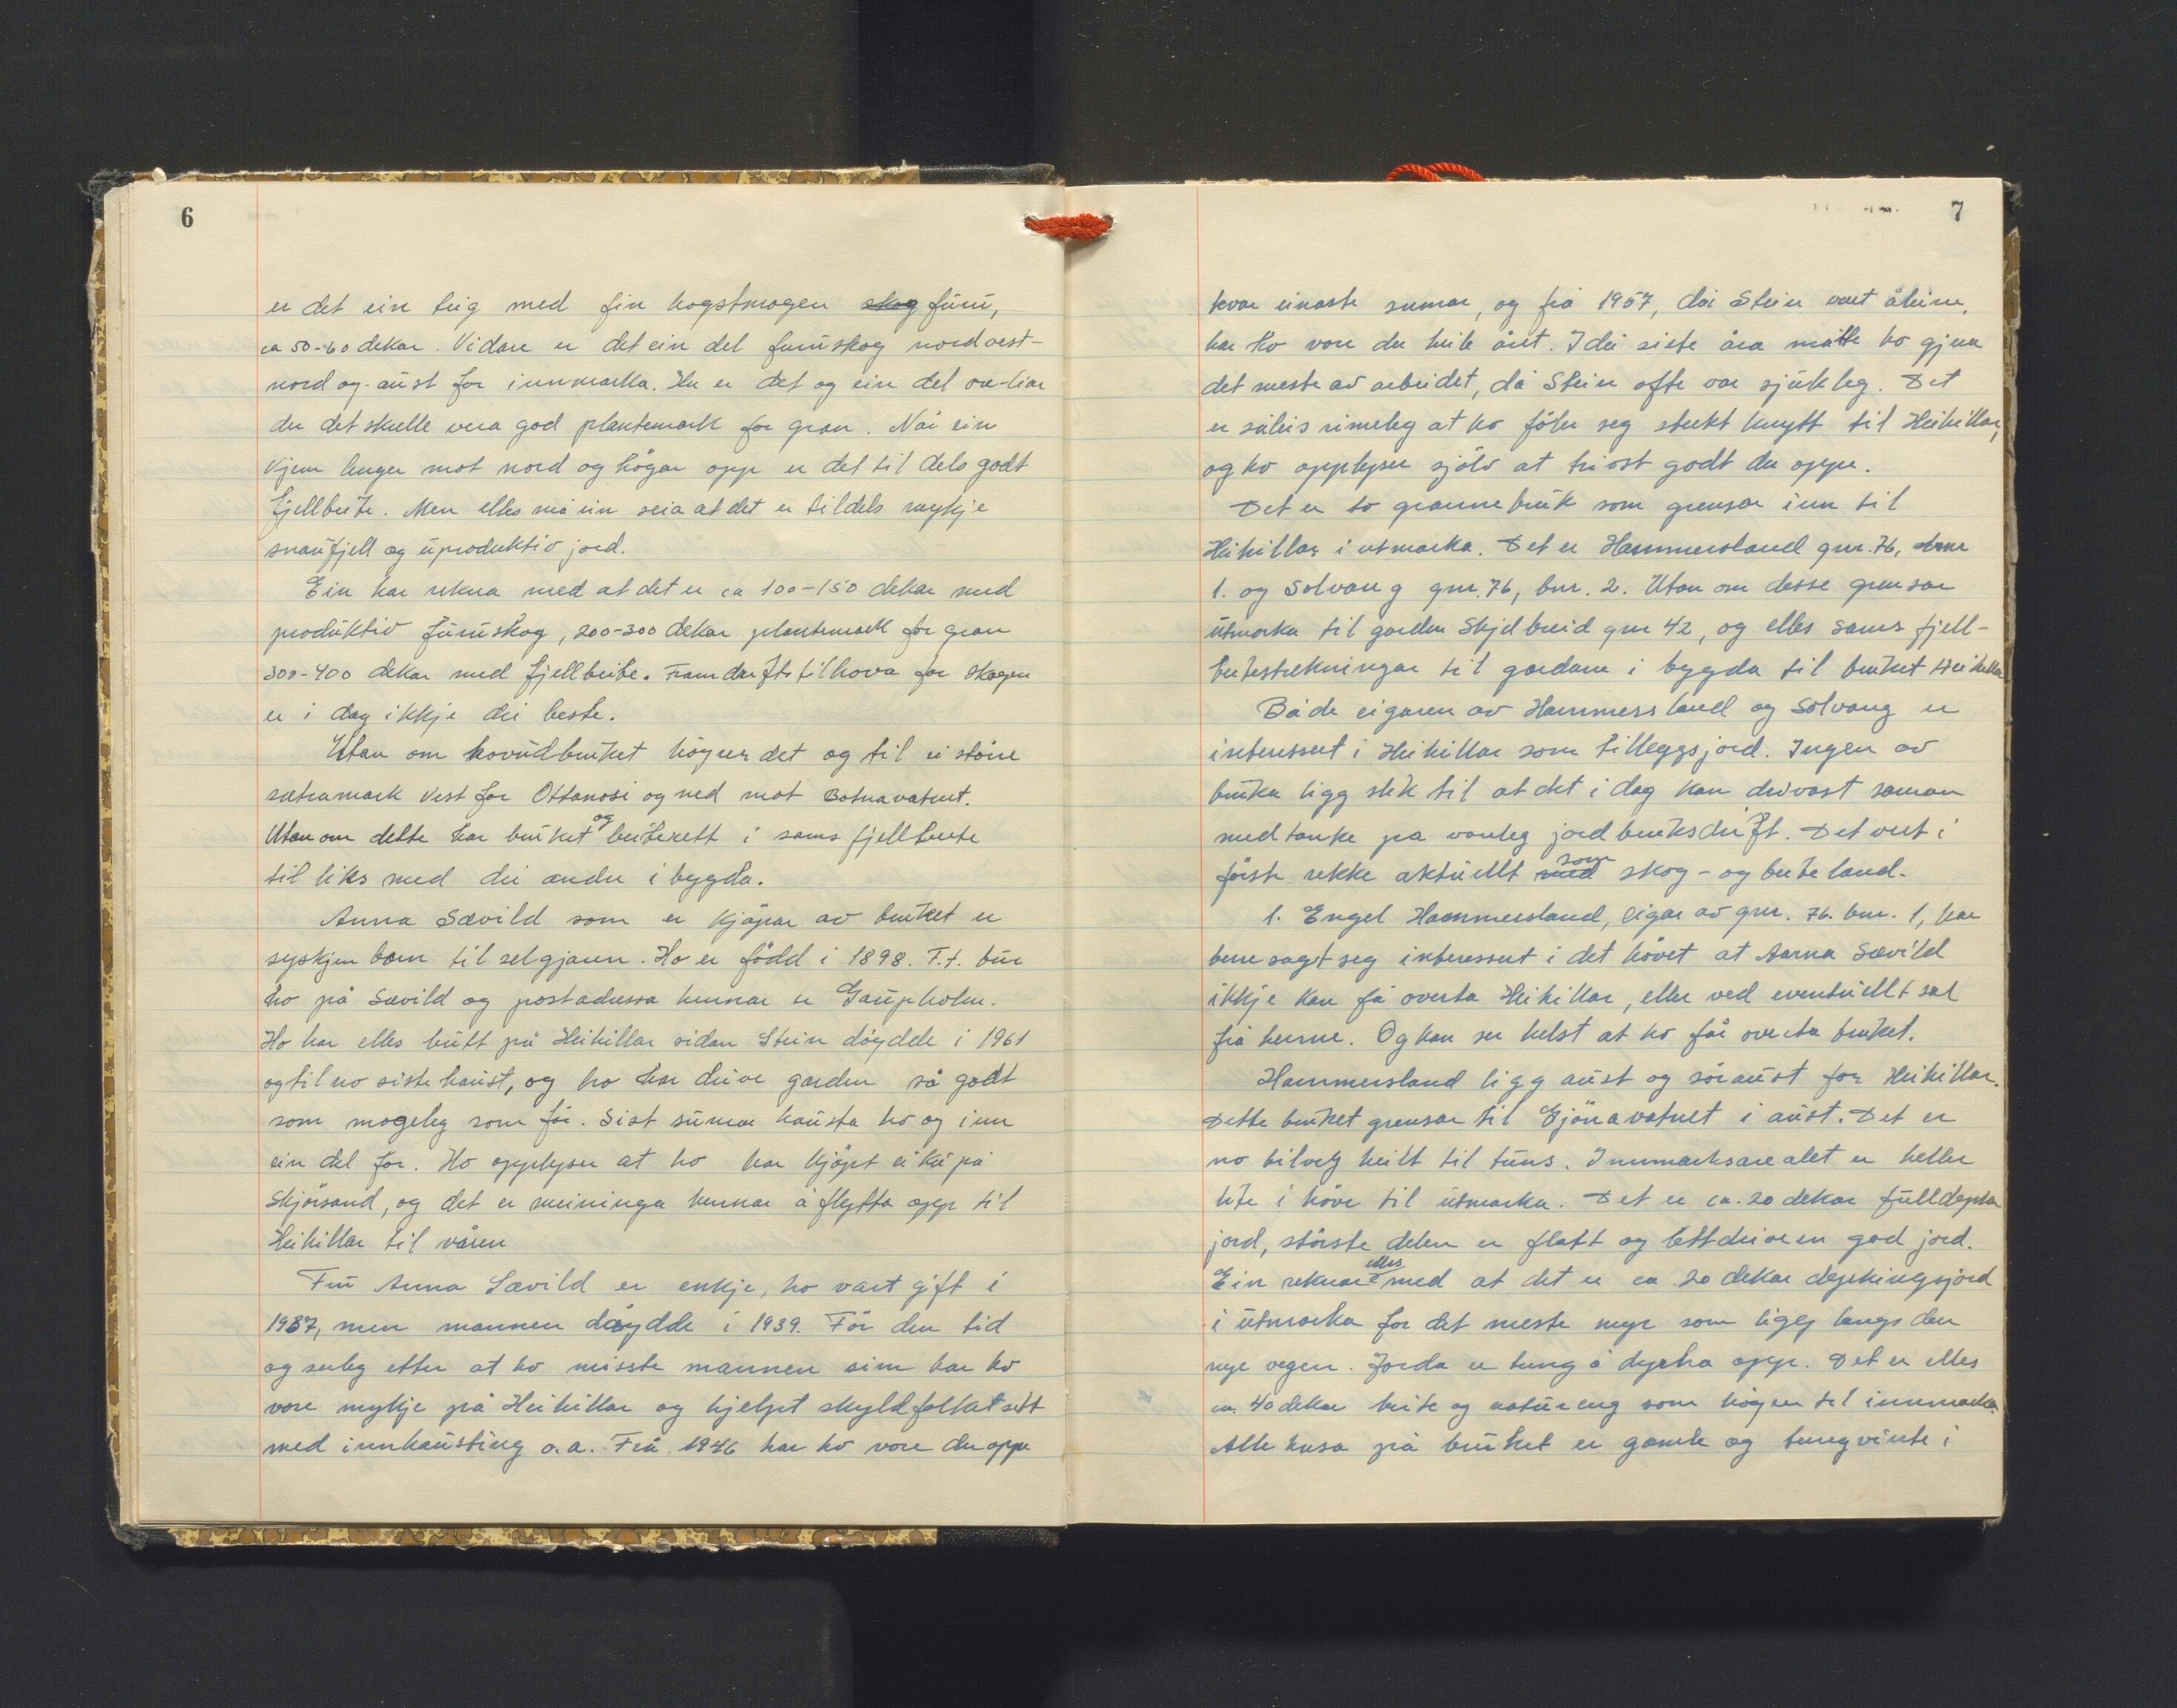 6
er det ein teig med fin hogstmogen skog furu,
ca 50-60 dekar. Vidare er det ein del furuskog nordvest-
nord og aust for innmarka. Her er det og ein del ore-liar
der det skulle vera god plantemark for gran. Når ein
kjem lenger mot nord og högar opp er det til dels godt
fjellbeite. Men elles må ein seia at det er tildels mykje
snaufjell og uproduktiv jord.
Ein kan rekna med at det er ca 100-150 dekar med
produktiv furuskog, 200-300 dekar plantemark for gran
300-400 dekar med fjellbeite. Framdriftstilhova for skogen
er i dag ikkje dei beste.
Utan om hovudbruket höyrer det og til ei större
sætramark vest for Ottanosi og ned mot Botnavatnet.
Utanom dette har bruket og beiterett i sams fjellbeite
til liks med dei andre i bygda.
Anna Sævild som er kjöpar av bruket er
syskjenbarn til selgjaren. Ho er född i 1898. F.t. bur
ho på Sævild og postadressa hennar er Gaupholm.
Ho har elles butt på Heikillar sidan Stein döydde i 1961
og til no siste haust, og ho har drive garden så godt
som mogeleg som för. Sist sumar hausta ho og inn
ein del för. Ho opplyser at ho har kjöpt ei ku på
Skjörsand, og det er meininga hennar å flytta opp til
Heikillar til våren
Fru Anna Sævild er enkje, ho vart gift i
1937, men mannen döydde i 1939. För den tid
og serleg etter at ho misste mannen sin har ho
vore mykje på Heikillar og hjelpt skyldfolket sitt
med innhausting o.a. Frå 1946 har ho vore der oppe
7
kvar einaste sumar, og frå 1957, då Stein vart åleine,
har ho vore der heile året. I dei siste åra måtte ho gjera
det meste av arbeidet, då Stein ofte var sjukleg. Det
er såleis rimeleg at ho föler seg sterkt knytt til Heikillar,
og ho opplyser sjölv at trivst godt der oppe.
Det er to grannebruk som grensar inn til
Heikillar i utmarka. Det er Hammersland gnr. 76, bnr
1. og Solvang gnr. 76, bnr. 2. Utan om desse grensar
utmarka til garden Skjelbreid gnr 42, og elles sams fjell-
beitestrekningar til gardane i bygda til bruket Heikillar
Både eigaren av Hammersland og Solvang er
interessert i Heikillar som tilleggsjord. Ingen av
bruka ligg slik til at det i dag kan drivast saman
med tanke på vanleg jordbruksdrift. Det vert i
förste rekke aktuellt med som skog- og beiteland.
1. Engel Hammersland, eigar av gnr. 76. bnr. 1, har
berre sagt seg interessert i det hövet at Anna Sævild
ikkje kan få overta Heikillar, eller ved eventuellt sal
frå henne. Og han ser helst at ho får overta bruket.
Hammersland ligg aust og söraust for Heikillar.
Dette bruket grensar til Gjönavatnet i aust. Det er
no bilveg heilt til tuns. Innmarksarealet er heller
lite i höve til utmarka. Det er ca. 20 dekar fulldyrka
jord, störste delen er flatt og lettdriven god jord.
Ein reknar elles med at det er ca 20 dekar dyrkingsjord
i utmarka for det meste myr som ligg langs den
nye vegen. Jorda er tung å dyrka opp. Det er elles
ca. 40 dekar beite og natureng som höyrer til innmarka.
Alle husa på bruket er gamle og tungvinte i